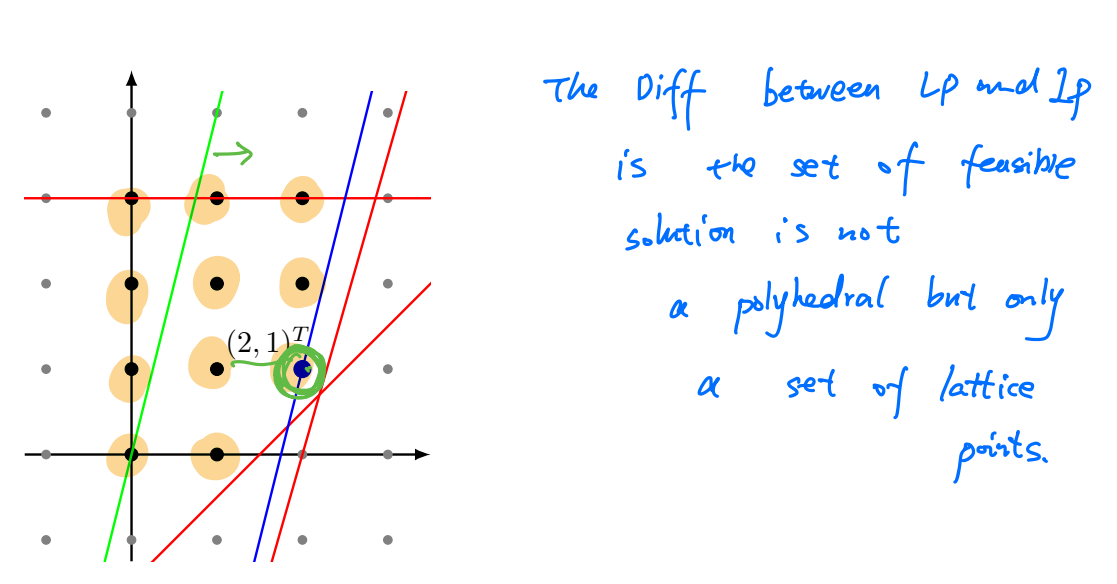 The Diff between LP and Ip
is the set of feasible
solution is not
a polyhedral but only
(2, 1)^T
a set of lattice
points.